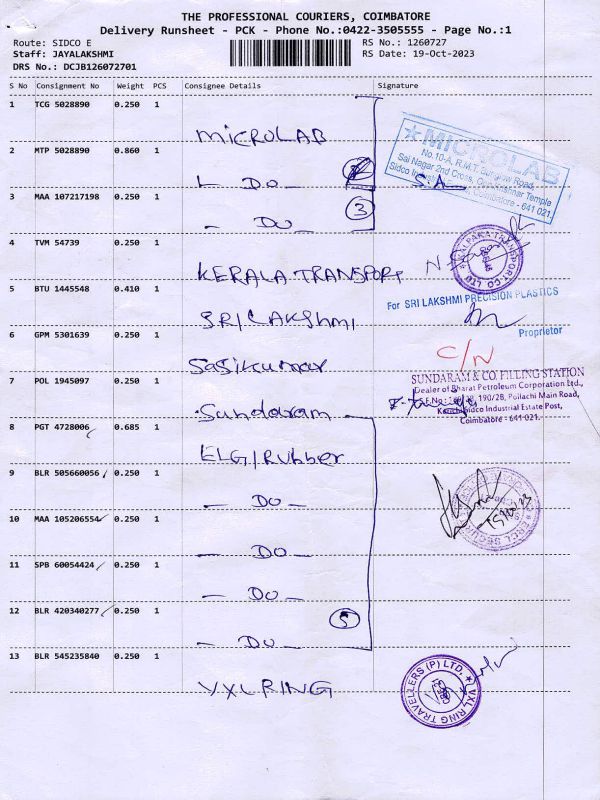 THE PROFESSIONAL COURIERS, COIMBATORE
Delivery Runsheet - PCK - Phone No.:0422-3505555 - Page No.:1
Route: SIDCO E
RS No.: 1260727
Staff: JAYALAKSHMI
RS Date: 19-Oct-2023
DRS No.: DCJB126072701
S No Consignment No Weight PCS Consignee Details Signature
1 TCG 5028890 0.250 1
MICROLAB
2 MTP 5028890 0.860 1
DO
S.A
3 MAA 107217198 0.250 1
DO
3
MICROLAB
No.10-A, R.M.T. Bungalow Road,
Sai Nagar 2nd Cross,
Coimbatore - 641 021.
4 TVM 54739 0.250 1
KERALA TRANSPORT
5 BTU 1445548 0.410 1
SRI LAKSHMI
For SRI LAKSHMI PRECISION PLASTICS
Proprietor
6 GPM 5301639 0.250 1
Sasikumar
C/N
7 POL 1945097 0.250 1
Sundaram
SUNDARAM & CO FILLING STATION
Dealer of Bharat Petroleum Corporation Ltd.,
190/2B, Pollachi Main Road,
Sidco Industrial Estate Post,
Coimbatore - 641 021.
8 PGT 4728006 0.685 1
ELGI Rubber
9 BLR 505660056 0.250 1
DO
10 MAA 105206554 0.250 1
DO
11 SPB 60054424 0.250 1
DO
12 BLR 420340277 0.250 1
DO
5
13 BLR 545235840 0.250 1
VXL RING
VXL RING TRAVELLERS (P) LTD.